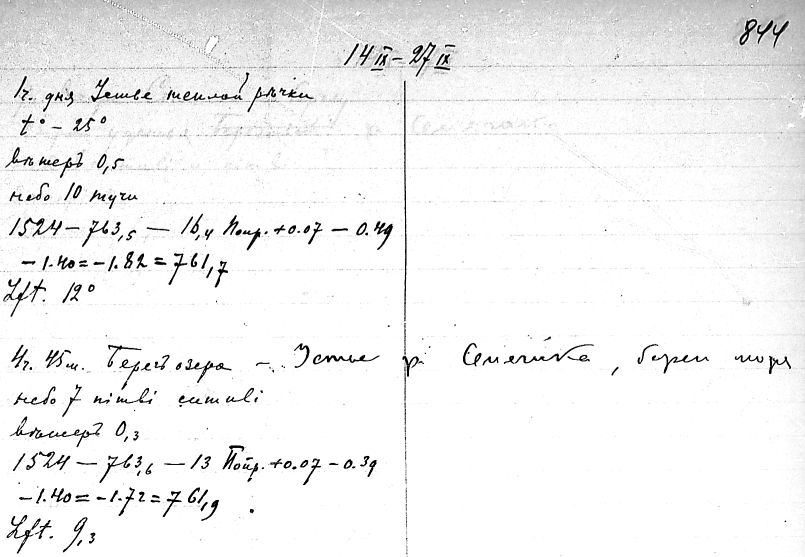 844
14 IX – 27 IX
1ч. дня Устье теплой рѣчки
t° – 25°
вѣтеръ 0,5
небо 10 тучи
1524 – 763,5 – 16,4 Попр. +0.07 – 0.49
– 1.40 = – 1.82 = 761,7
Lft. 12°
4ч. 45м. Берегъ озера – Устье р. Семячика, берег моря
небо 7 nimbi cumuli
вѣтеръ 0,3
1524 – 763,6 – 13 Попр. +0.07 – 0.39
– 1.40 = – 1.72 = 761,9
Lft. 9,3